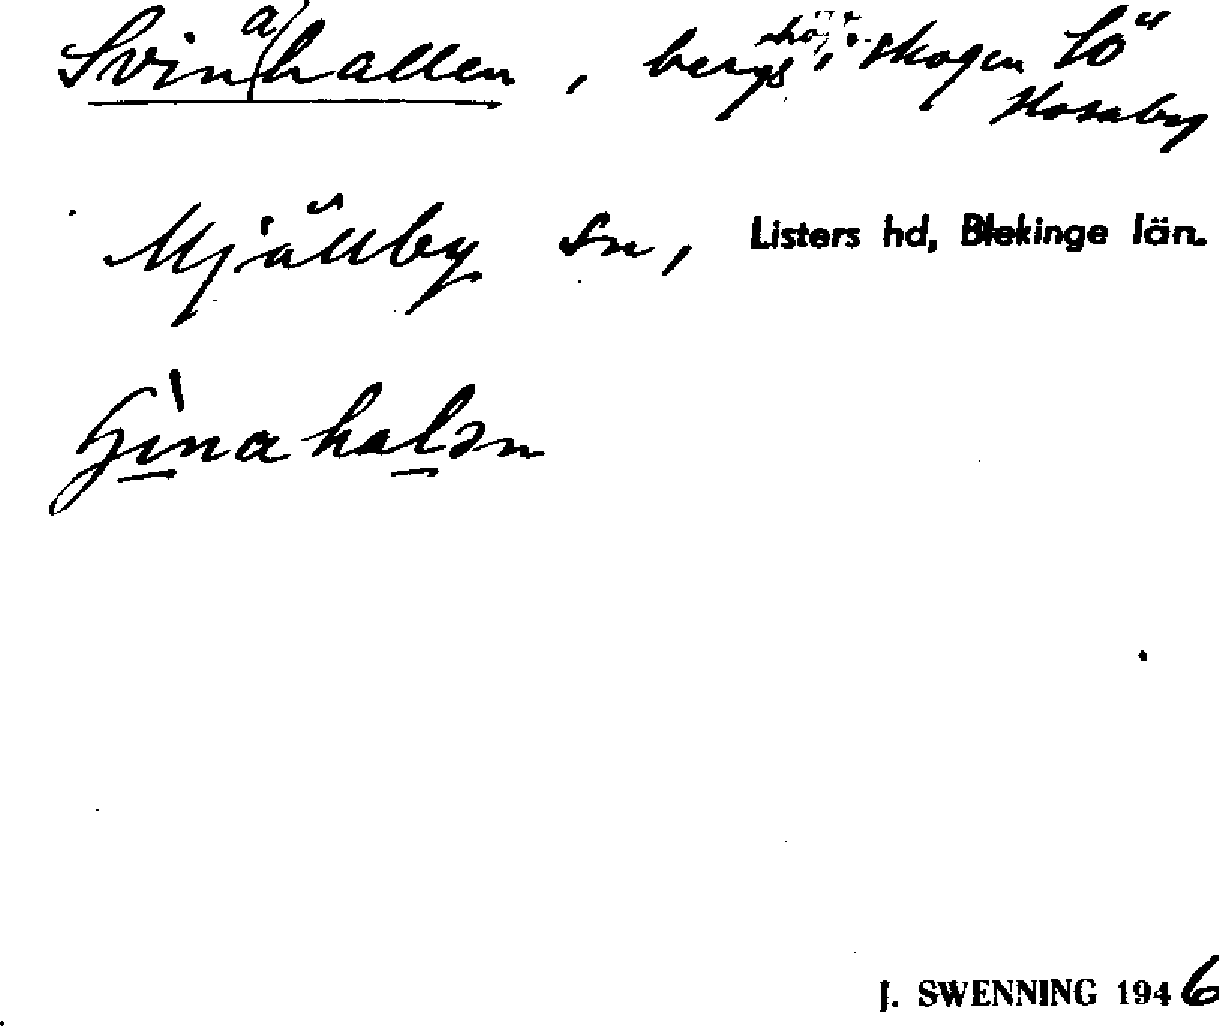 Svinahallen, bergshöjd i skogen SÖ
Hosaby
Mjällby sn, Listers hd, Blekinge län.
J. SWENNING 1946